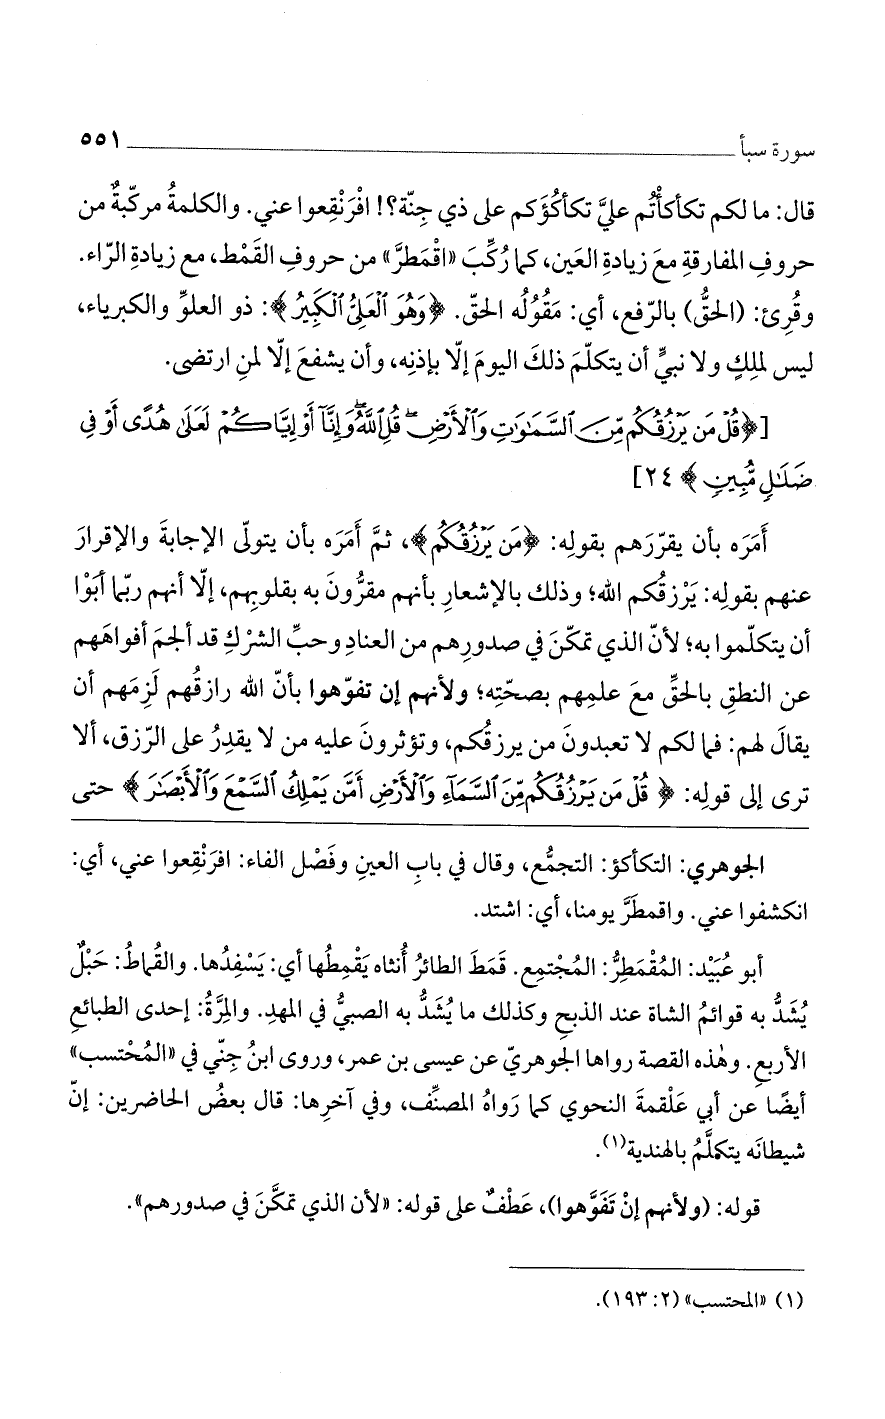 سورة سبأ ٥٥١
قال: ما لكم تكأكأتُم عليَّ تكأكُؤَكم على ذي جِنّة؟! افْرَنْقِعوا عني. والكلمةُ مركّبةٌ من
حروفِ المفارقةِ معَ زيادةِ العَين، كما رُكِّبَ «اقْمَطرَّ» من حروفِ القَمْط، مع زيادةِ الرّاء.
وقُرِئ: (الحقُّ) بالرّفع، أي: مَقُوْلُه الحقّ. ﴿وَهُوَ ٱلْعَلِىُّ ٱلْكَبِيرُ﴾: ذو العلوِّ والكبرياء،
ليس لملِكٍ ولا نبيٍّ أن يتكلّمَ ذلكَ اليومَ إلّا بإذنِه، وأن يشفعَ إلّا لمنِ ارتضى.
[﴿قُلْ مَن يَرْزُقُكُم مِّنَ ٱلسَّمَٰوَٰتِ وَٱلْأَرْضِ ۖ قُلِ ٱللَّهُ ۖ وَإِنَّآ أَوْ إِيَّاكُمْ لَعَلَىٰ هُدًى أَوْ فِى
ضَلَٰلٍ مُّبِينٍ﴾ ٢٤]
أَمَرَه بأن يقرّرَهم بقولِه: ﴿مَن يَرْزُقُكُم﴾، ثمَّ أَمَرَه بأن يتولّى الإجابةَ والإقرارَ
عنهم بقولِه: يَرْزقُكم الله؛ وذلك بالإشعارِ بأنهم مقرُّونَ به بقلوبِهم، إلّا أنهم ربّما أبَوْا
أن يتكلّموا به؛ لأنّ الذي تمكّنَ في صدورِهم من العنادِ وحبِّ الشركِ قد ألجمَ أفواهَهم
عن النطقِ بالحقِّ معَ علمِهم بصحّتِه؛ ولأنهم إن تفوّهوا بأنّ الله رازقُهم لَزِمَهم أن
يقالَ لهم: فما لكم لا تعبدونَ من يرزقُكم، وتؤثرونَ عليه من لا يقدِرُ على الرّزق، ألا
ترى إلى قولِه: ﴿قُلْ مَن يَرْزُقُكُم مِّنَ ٱلسَّمَآءِ وَٱلْأَرْضِ أَمَّن يَمْلِكُ ٱلسَّمْعَ وَٱلْأَبْصَٰرَ﴾ حتى
الجوهري: التكأكؤ: التجمُّع، وقال في بابِ العينِ وفَصْل الفاء: افرَنْقِعوا عني، أي:
انكشفوا عني. واقمطَرَّ يومنا، أي: اشتد.
أبو عُبَيْد: المُقْمَطِرُّ: المُجْتمِع. قَمَطَ الطائرُ أُنثاه يَقْمِطُها أي: يَسْفِدُها. والقُماطُ: حَبْلٌ
يُشَدُّ به قوائمُ الشاة عند الذبحِ وكذلك ما يُشَدُّ به الصبيُّ في المهدِ. والمِرَّةُ: إحدى الطبائعِ
الأربعِ. وهٰذه القصة رواها الجوهريّ عن عيسى بن عمر، وروى ابنُ جِنّي في «المُحْتسب»
أيضًا عن أبي عَلْقمةَ النحوي كما رَواهُ المصنِّف، وفي آخرِها: قال بعضُ الحاضرين: إنّ
شيطانَه يتكلَّمُ بالهندية(١).
قوله: (ولأنهم إنْ تَفَوَّهوا)، عَطْفٌ على قوله: «لأن الذي تمكَّنَ في صدورهم».
(١) «المحتسب» (٢: ١٩٣).